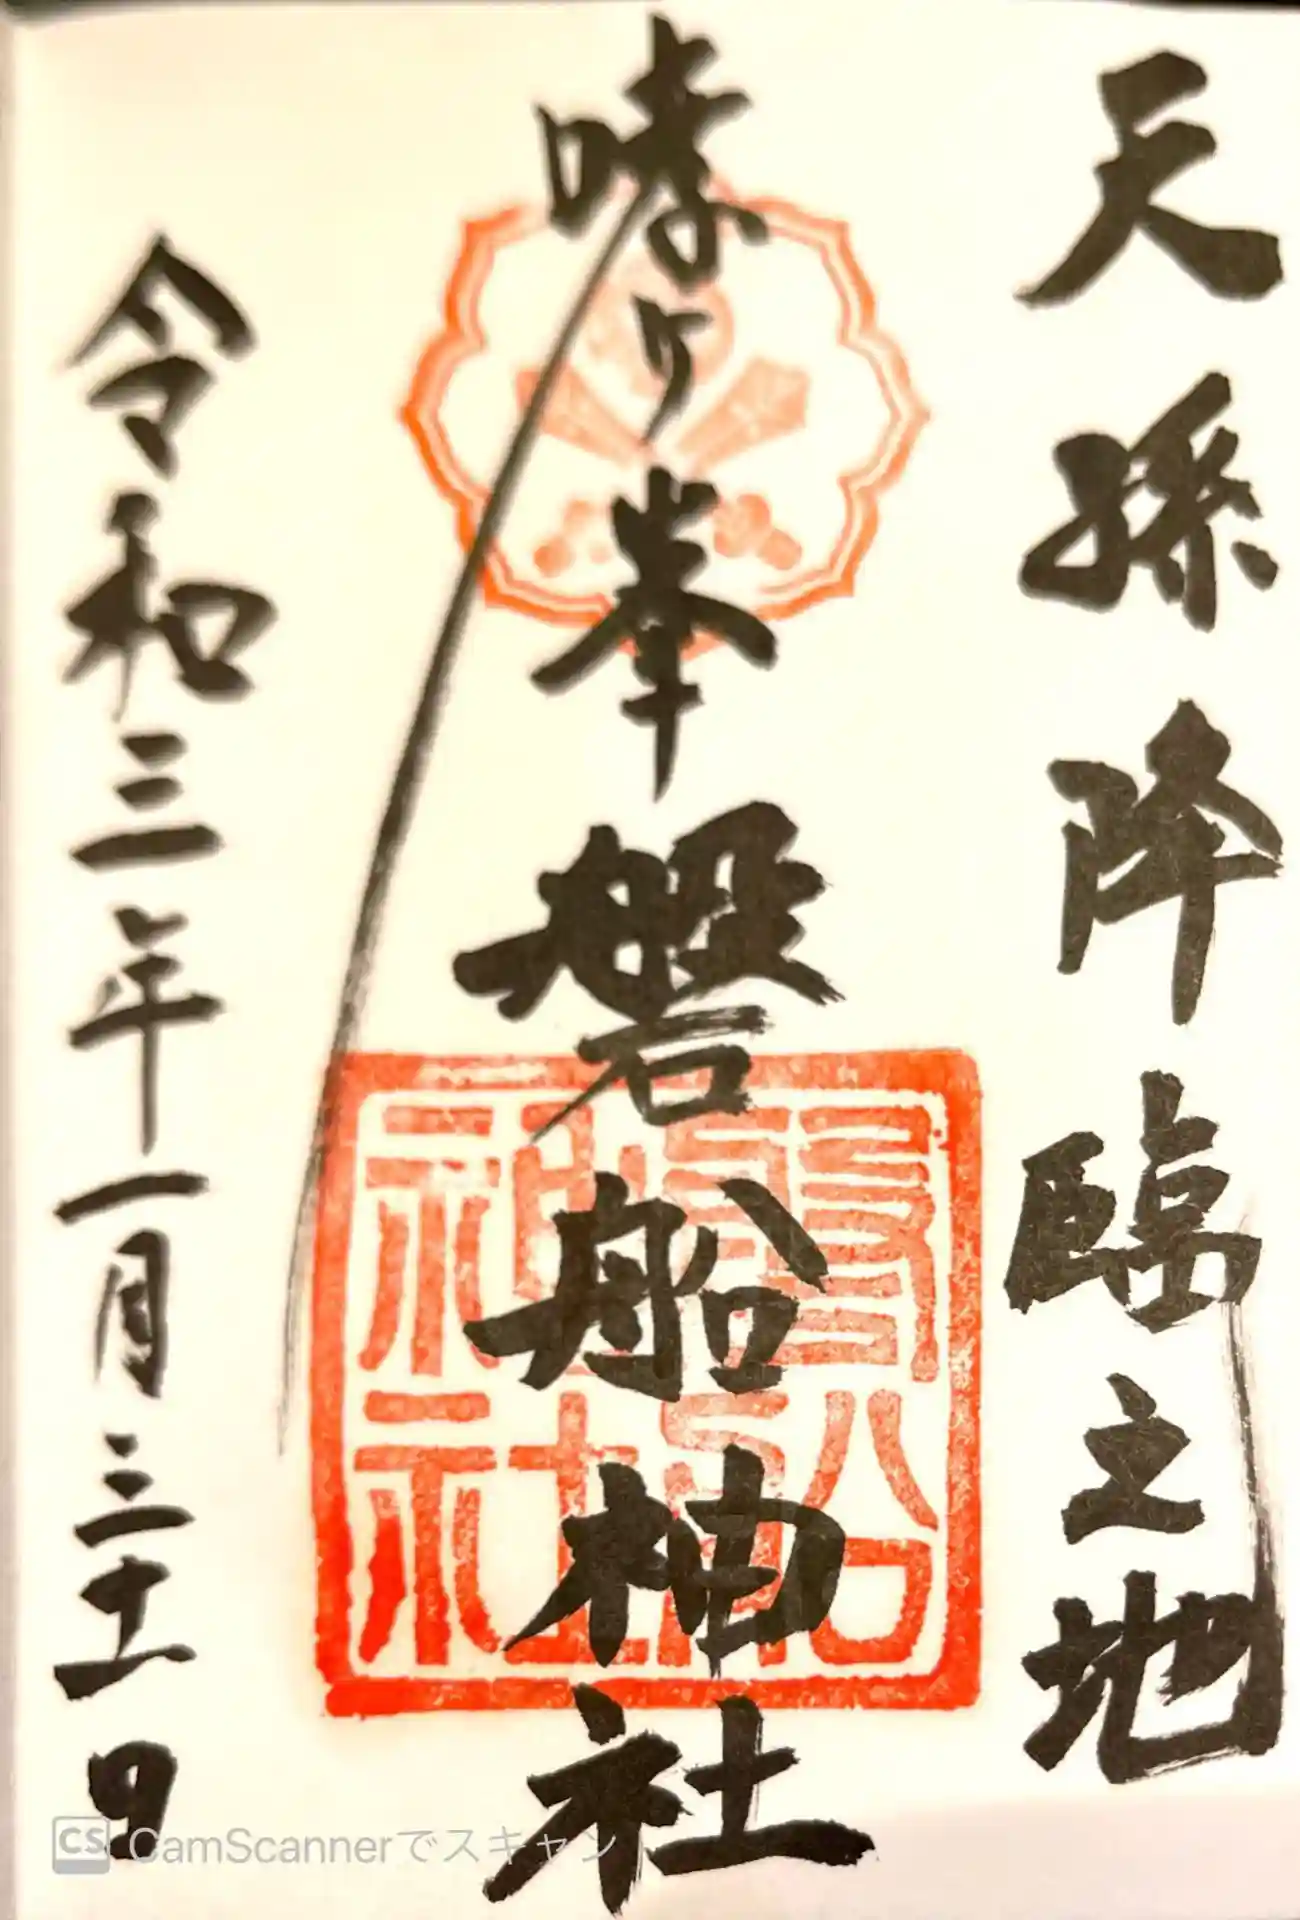 天孫降臨之地
哮ヶ峯磐船神社
令和三年一月三十一日
磐船
神社
CS CamScannerでスキャン